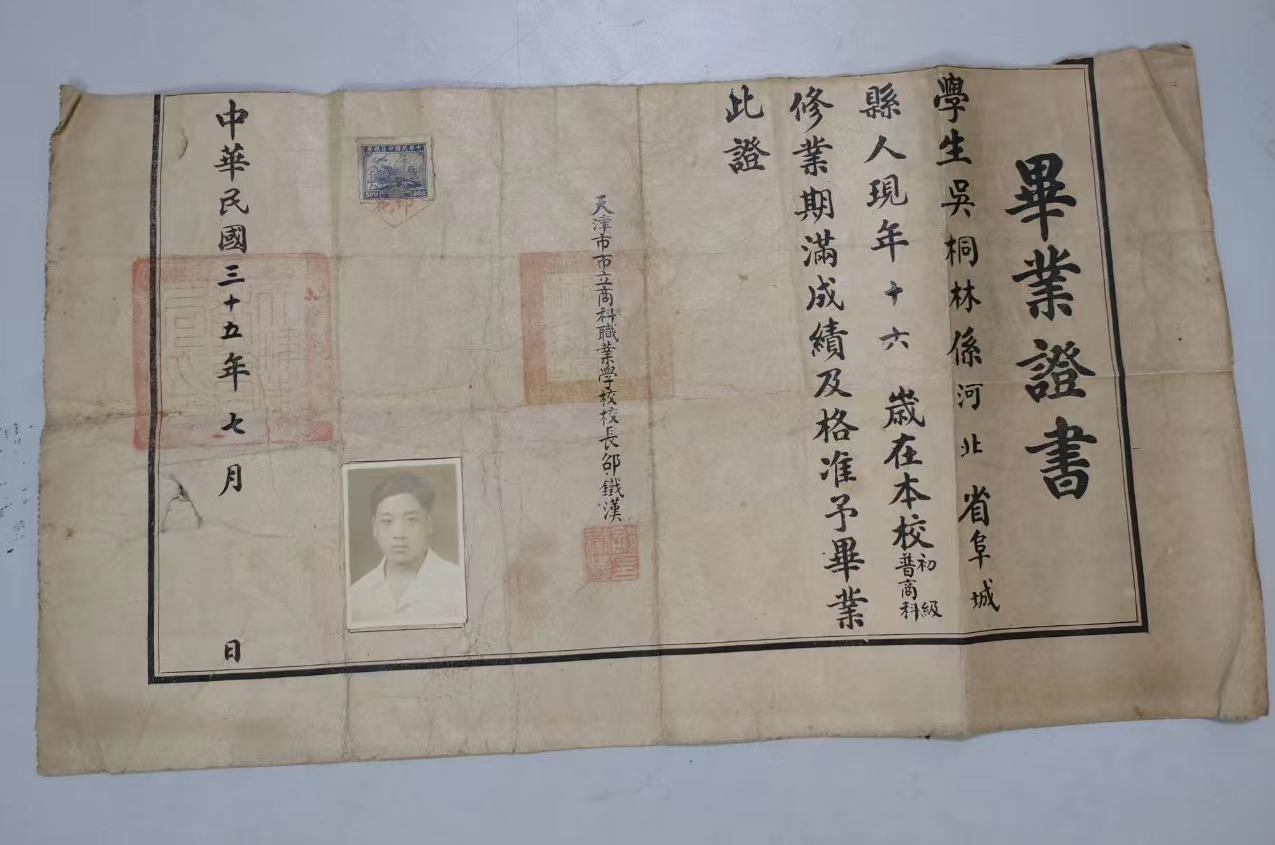 畢業證書
學生吳桐林係河北省阜城
縣人現年十六歲在本校初級普商科
修業期滿成績及格准予畢業
此證
天津市市立商科職業學校校長邵鐵漢
印花
中華民國三十五年七月 日